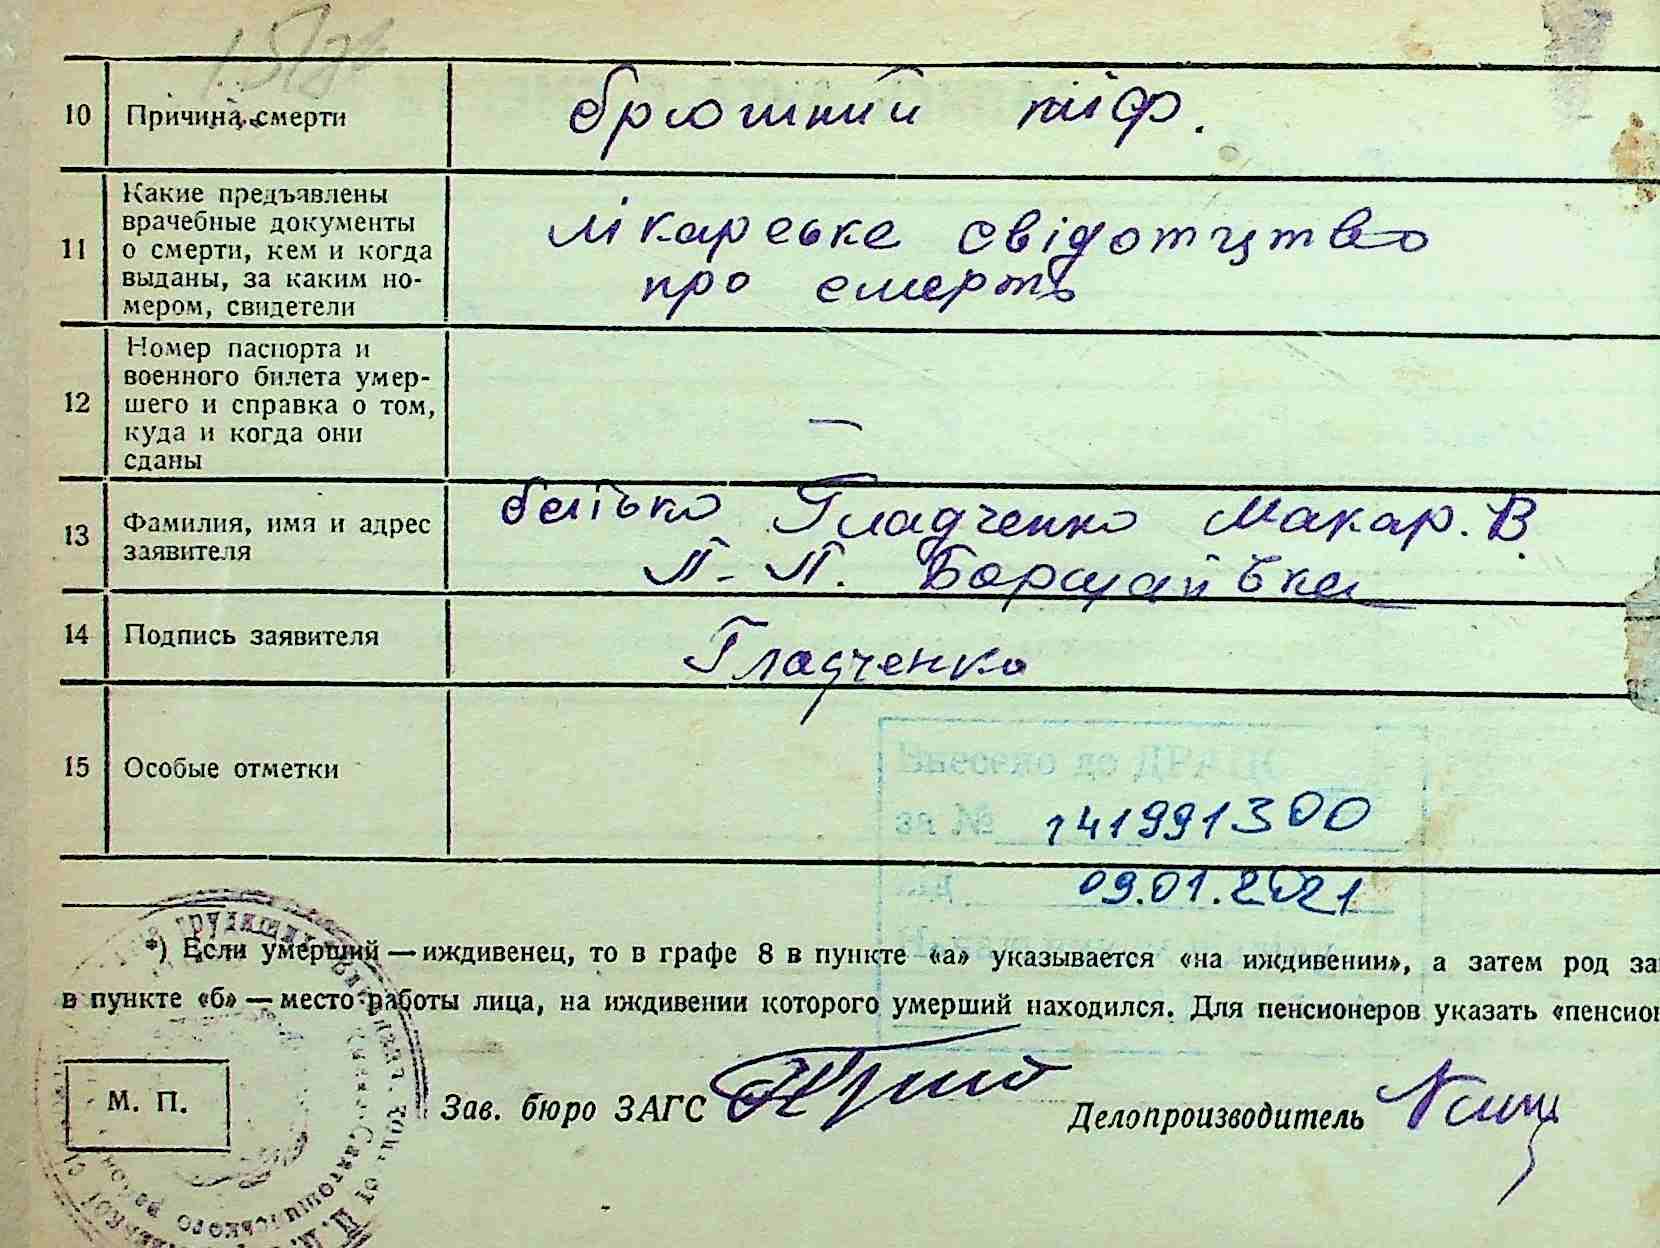 10 Причина смерти брюшний тіф.
11 Какие предъявлены
врачебные документы
о смерти, кем и когда
выданы, за каким но-
мером, свидетели
лікарське свідотцтво
про смерть
12 Номер паспорта и
военного билета умер-
шего и справка о том,
куда и когда они
сданы
—
13 Фамилия, имя и адрес
заявителя
батько Гладченко Макар. В
П-П. Борщаївка
14 Подпись заявителя Гладченко
15 Особые отметки
Внесено до ДРАЦС
за № 141991300
від 09.01.2021
*) Если умерший — иждивенец, то в графе 8 в пункте «а» указывается «на иждивении», а затем род за
в пункте «б» — место работы лица, на иждивении которого умерший находился. Для пенсионеров указать «пенсион
М. П.
Зав. бюро ЗАГС
Делопроизводитель